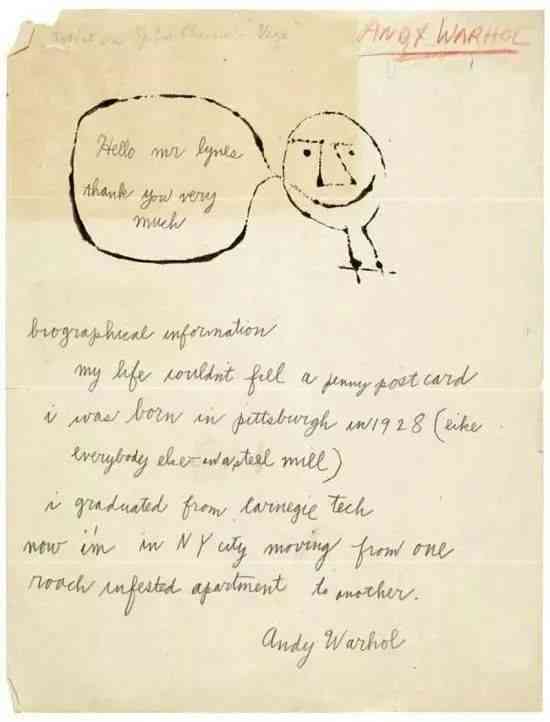 ANDY WARHOL
Hello mr lynes
thank you very
much
biographical information
my life couldn't fill a penny post card
i was born in pittsburgh in 1928 (like
everybody else - in a steel mill)
i graduated from carnegie tech
now i'm in NY city moving from one
roach infested apartment to another.
Andy Warhol